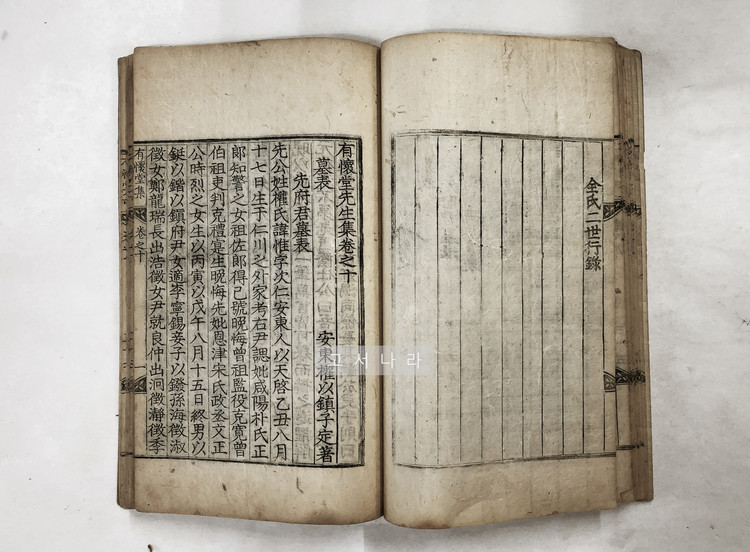 全氏二世行錄
有懷堂先生集卷之十
墓表 安東權以鎭子定著
先府君墓表
先公姓權氏諱惟字次仁安東人以天啓乙丑八月
十七日生于仁川之外家考右尹諰妣咸陽朴氏正
郞知警之女祖佐郞得己號晩悔曾祖監役克寬曾
伯祖吏判克禮寔生晩悔先妣恩津宋氏政丞文正
公時烈之女生以丙寅以戊午八月十五日終男以
鋌以鏳以鎭府尹女適李寧錫妾子以鐙孫海徵淑
徵女鄭龍瑞長出浩徵女尹就良仲出泂徵瀞徵季
有懷堂集 卷之十 一
고서나라